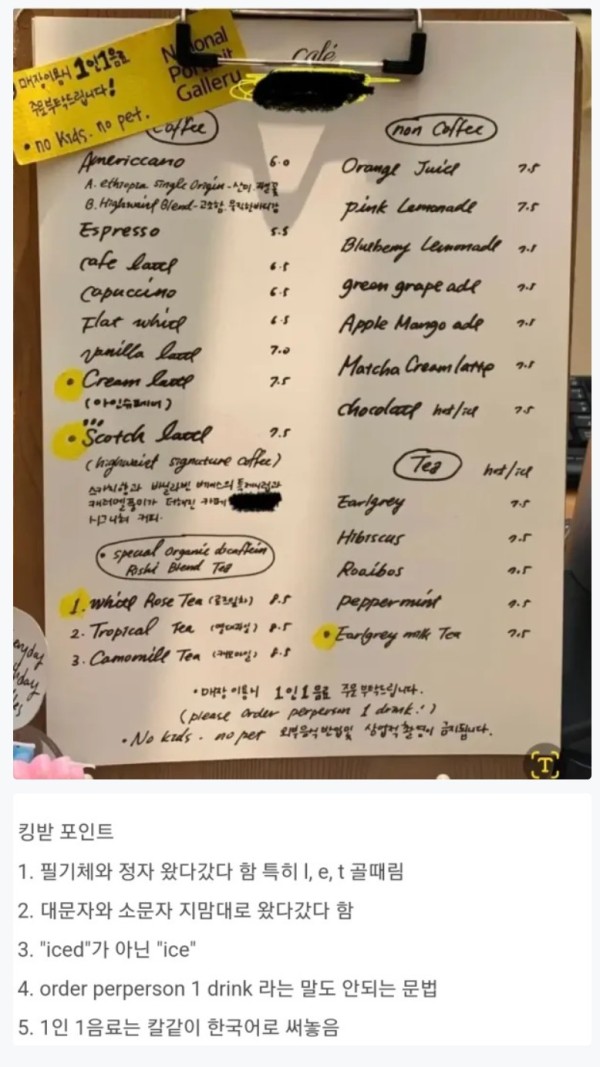 매장이용시 1인1음료
주문부탁드립니다!
• no kids. no pet.
National
Portrait
Gallery
café
Coffee
Americcano 6.0
A. ethiopia single Origin - 산미.
B. Highwaist Blend - 고소함. 묵직한바디감
Espresso 5.5
cafe latte 6.5
Capuccino 6.5
Flat white 6.5
vanilla latte 7.0
• Cream latte 7.5
(아인슈페너)
• Scotch latte 7.5
(highwaist signature coffee)
스카치향과 바닐라빈
캐러멜풍미가 더해진 카페
시그니쳐 커피.
• special Organic decaffein
Rishi Blend Tea
1. White Rose Tea (로즈일화) 8.5
2. Tropical Tea 8.5
3. Camomill Tea (캐모마일) 8.5
non Coffee
Orange Juice 7.5
pink Lemonade 7.5
Blueberry Lemonade 7.5
green grape ade 7.5
Apple Mango ade 7.5
Matcha Cream latte 7.5
chocolate hot/ice 7.5
Tea hot/ice
Earlgrey 7.5
Hibiscus 7.5
Rooibos 7.5
peppermint 7.5
• Earlgrey milk Tea 7.5
• 매장 이용시 1인1음료 주문 부탁드립니다.
(please order perperson 1 drink!)
• No kids. no pet 외부음식 반입및 상업적 촬영이 금지됩니다.
킹받 포인트
1. 필기체와 정자 왔다갔다 함 특히 l, e, t 골때림
2. 대문자와 소문자 지맘대로 왔다갔다 함
3. "iced"가 아닌 "ice"
4. order perperson 1 drink 라는 말도 안되는 문법
5. 1인 1음료는 칼같이 한국어로 써놓음